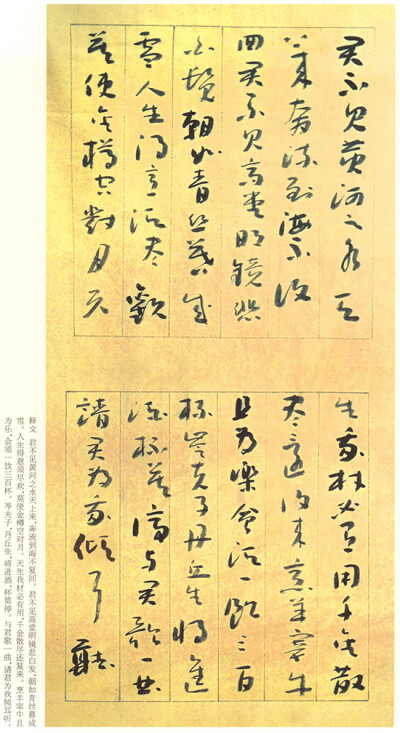 君不見黃河之水天
上來奔流到海不復
回君不見高堂明鏡悲
白髮朝如青絲暮成
雪人生得意須盡歡
莫使金樽空對月天
生我材必有用千金散
盡還復來烹羊宰牛
且為樂會須一飲三百
杯岑夫子丹丘生將進
酒杯莫停與君歌一曲
請君為我傾耳聽
释文 君不见黄河之水天上来,奔流到海不复回。君不见高堂明镜悲白发,朝如青丝暮成
雪。人生得意须尽欢,莫使金樽空对月。天生我材必有用,千金散尽还复来。烹羊宰牛且
为乐,会须一饮三百杯。岑夫子,丹丘生,将进酒,杯莫停。与君歌一曲,请君为我倾耳听。